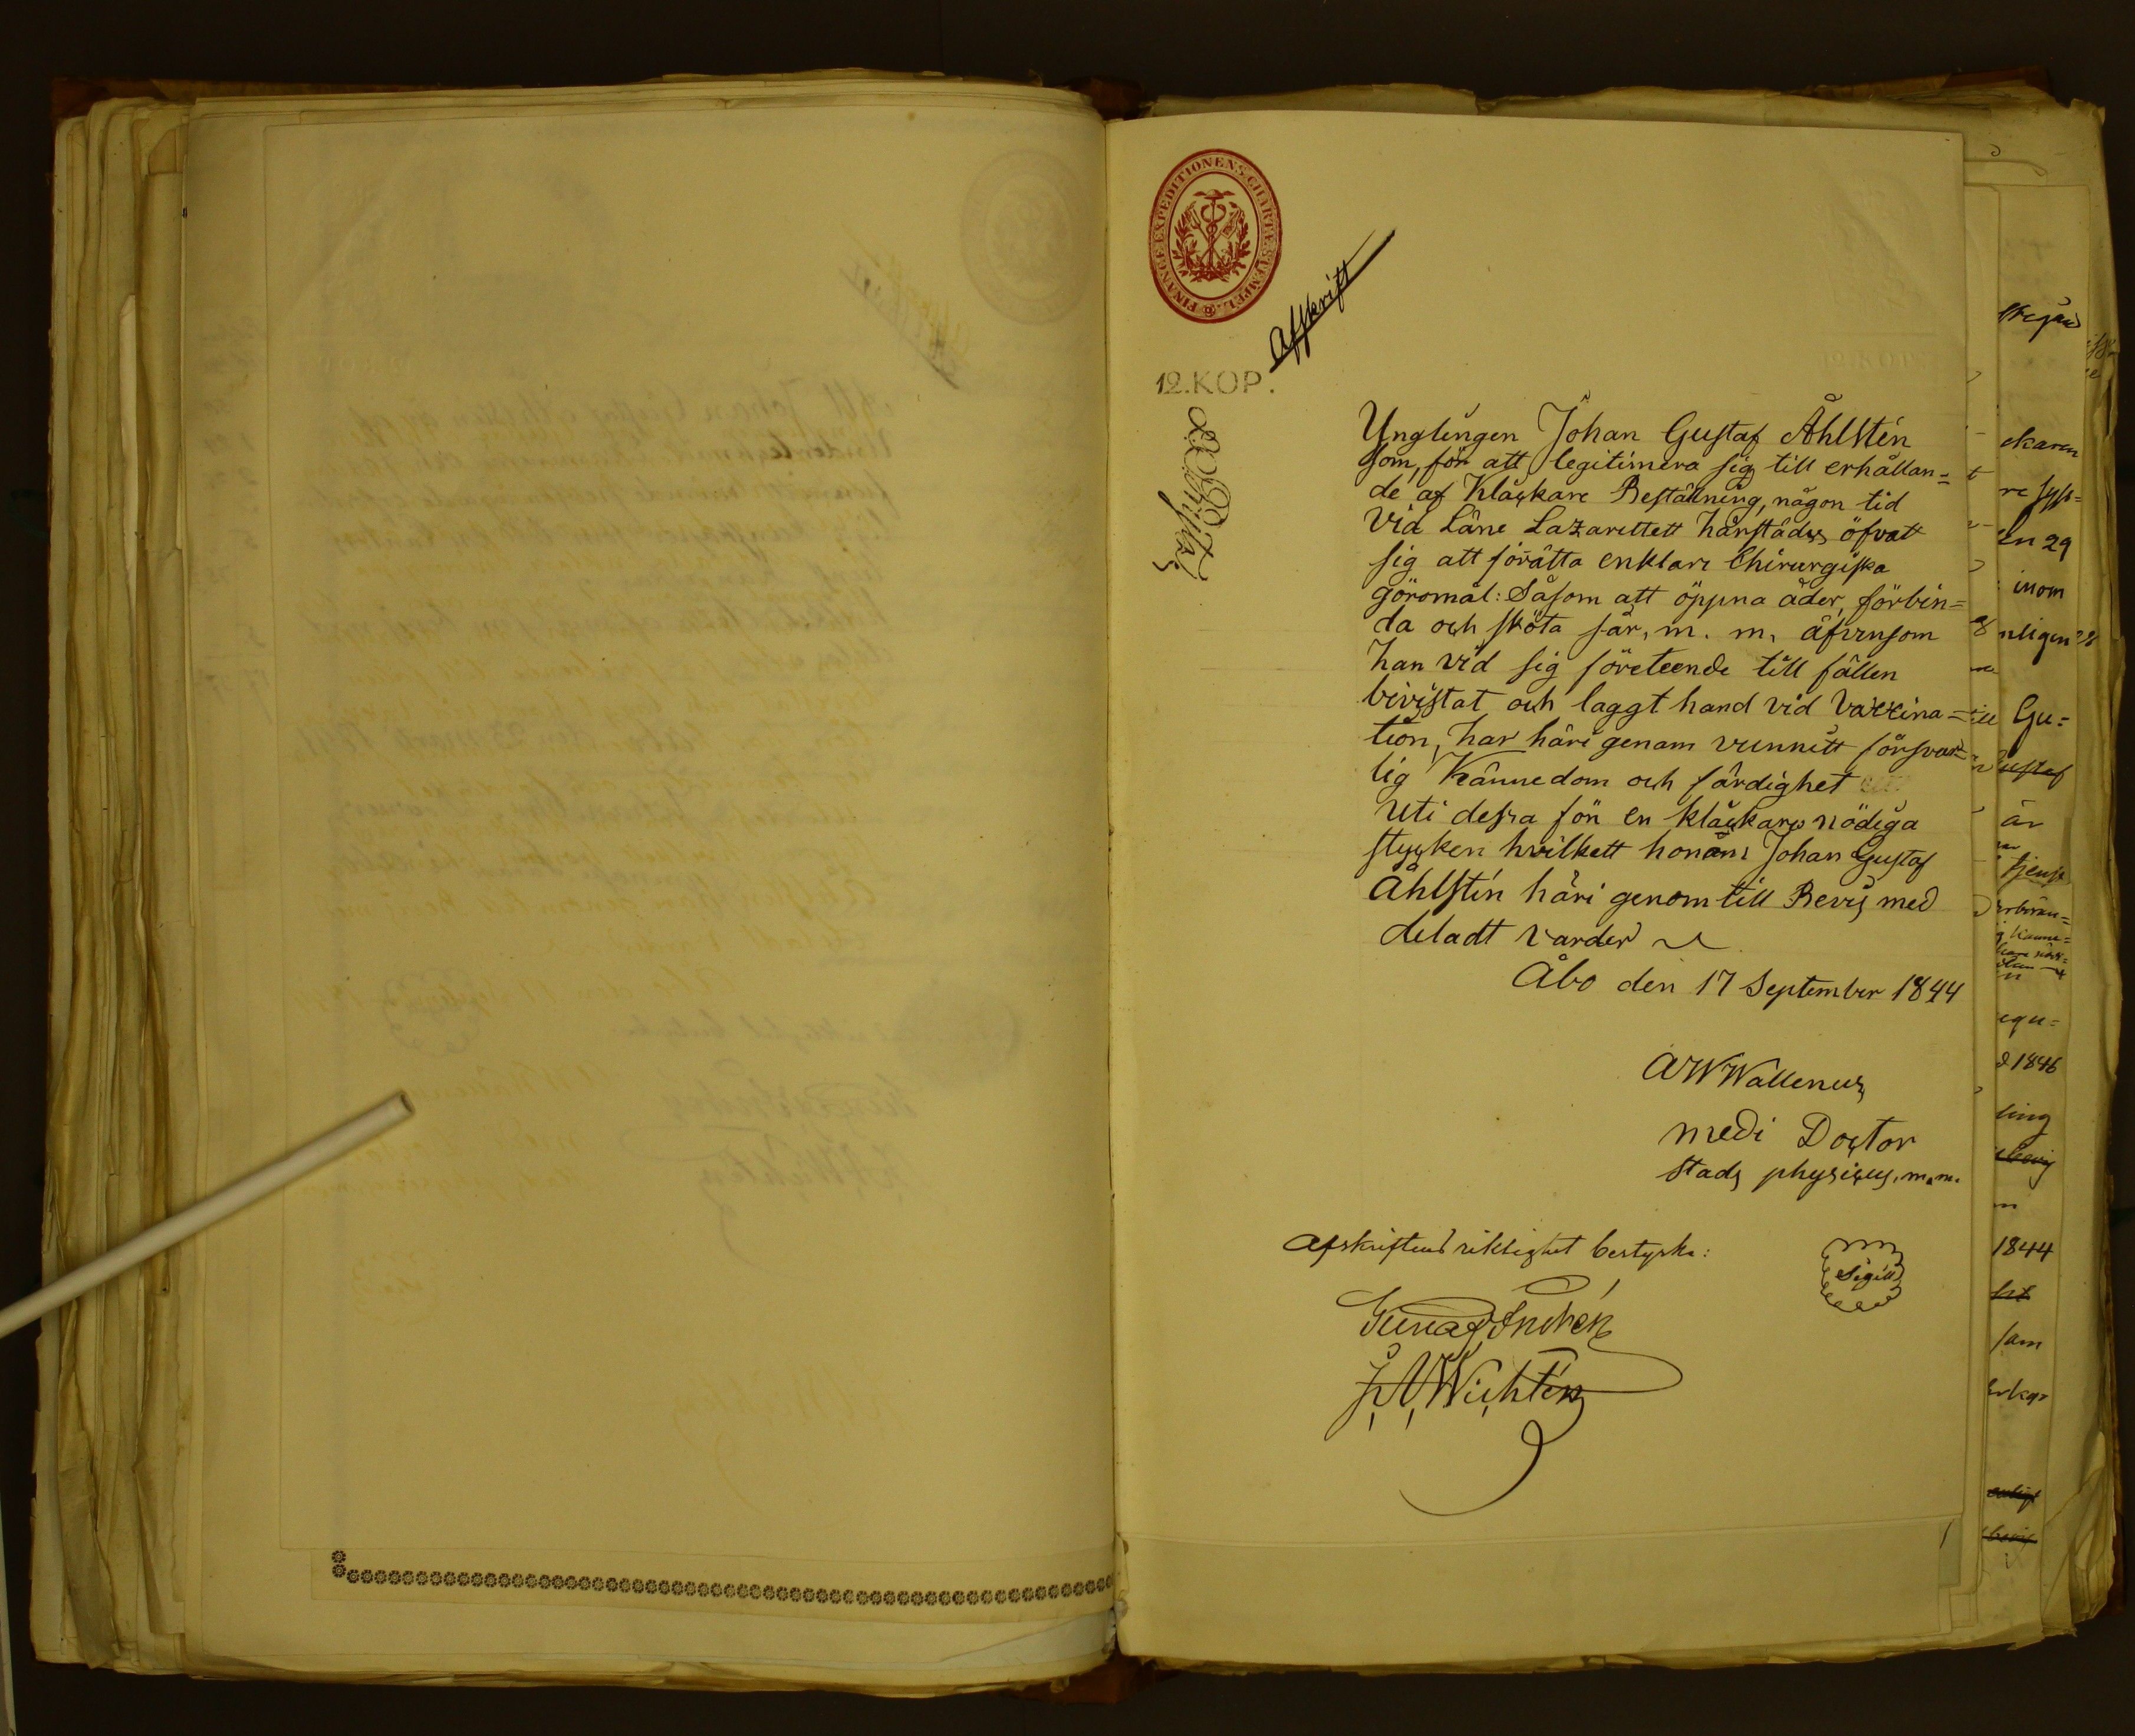 FINANCE EXPEDITIONENS CHARTÆ STEMPEL
Afskrift
12.KOP.
Unglingen Johan Gustaf Åhlstén
som, för att legitimera sig till erhållan=
de af Klåckare Beställning, någon tid
vid Läne Lazarettett härstädes öfvatt
sig att förrätta enklare Chirurgiska
göromål: Såsom att öppna åder, förbin=
da och sköta sår, m. m, äfvensom
han vid sig företeende till fällen
bivistat och laggt hand vid Vaccina=
tion, har häri genom vunnitt försvar
lig Kännedom och färdighet
uti dessa för en klåckare nödiga
stycken hvilkett honom Johan Gustaf
Åhlstén häri genom till Bevis med
deladt varder
Åbo den 17 September 1844
AWWallenus
medi Doctor
Stads physicus, m.m.
Afskriftens riktighet bestyrka:
Sigill
Wichtén
ekaren
en 29
inom
nligen
till Gu=
ustaf
är
1846
ling
1844